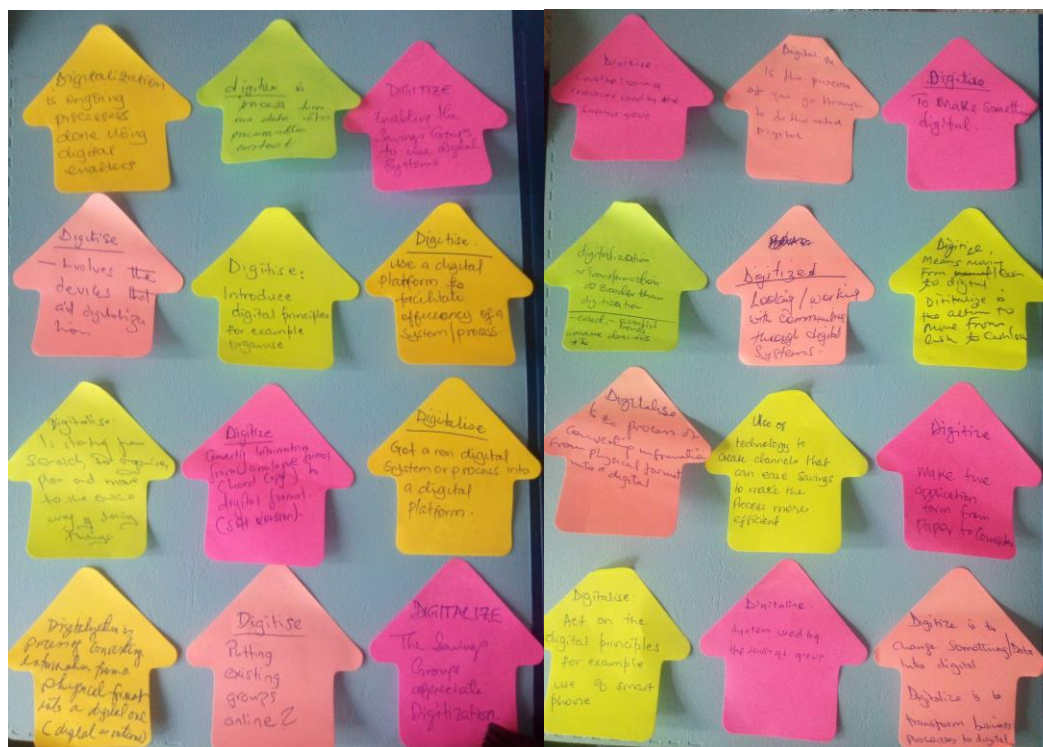 Digitalization
is ongoing
processes
done using
digital
enablers
digitize is
process turn
raw data into
processable
DIGITIZE
Enabling the
Savings Groups
to use digital
Systems
Digitise
devices that
aid
Digitise:
Introduce
digital principles
for example
organise
Digitise.
Use a digital
platform to
facilitate
efficiency of a
system/process
Digitalise:
Is starting from
scratch,
plan and move
to the online
way of doing
things
Digitize
information
from analogue format
(hard copy) to
digital format.
(soft version).
Digitalise
Got a non digital
System or process into
a digital
platform.
process of converting
information from a
physical format
into a digital one
Digitise
Putting
existing
groups
online ?
DIGITALIZE
The Savings
Groups
appreciate
Digitization.
Digitise.
resources used by the
group
Is the process
of you go through
to do the actual
Digital
Digitise
To make something
digital.
digitalization
Transformation
is broader than
digitization
Digitized
Looking/working
with communities
through digital
Systems.
Digitize
Means moving
from cash
to digital
Digitalize is
the action to
move from
cash to cashless
Digitalise
is the process of
Converting information
from physical format
into a digital
Use of
technology to
Create channels that
can ease savings
to make the
Process more
efficient
Digitize
make the
application
form from
Paper to Computer
Digitalise:
Act on the
digital principles
for example
use of smart
phone
Digitalise.
System used by
the savings group
Digitize is to
change something/Data
into digital
Digitalize is to
transform business
processes to digital